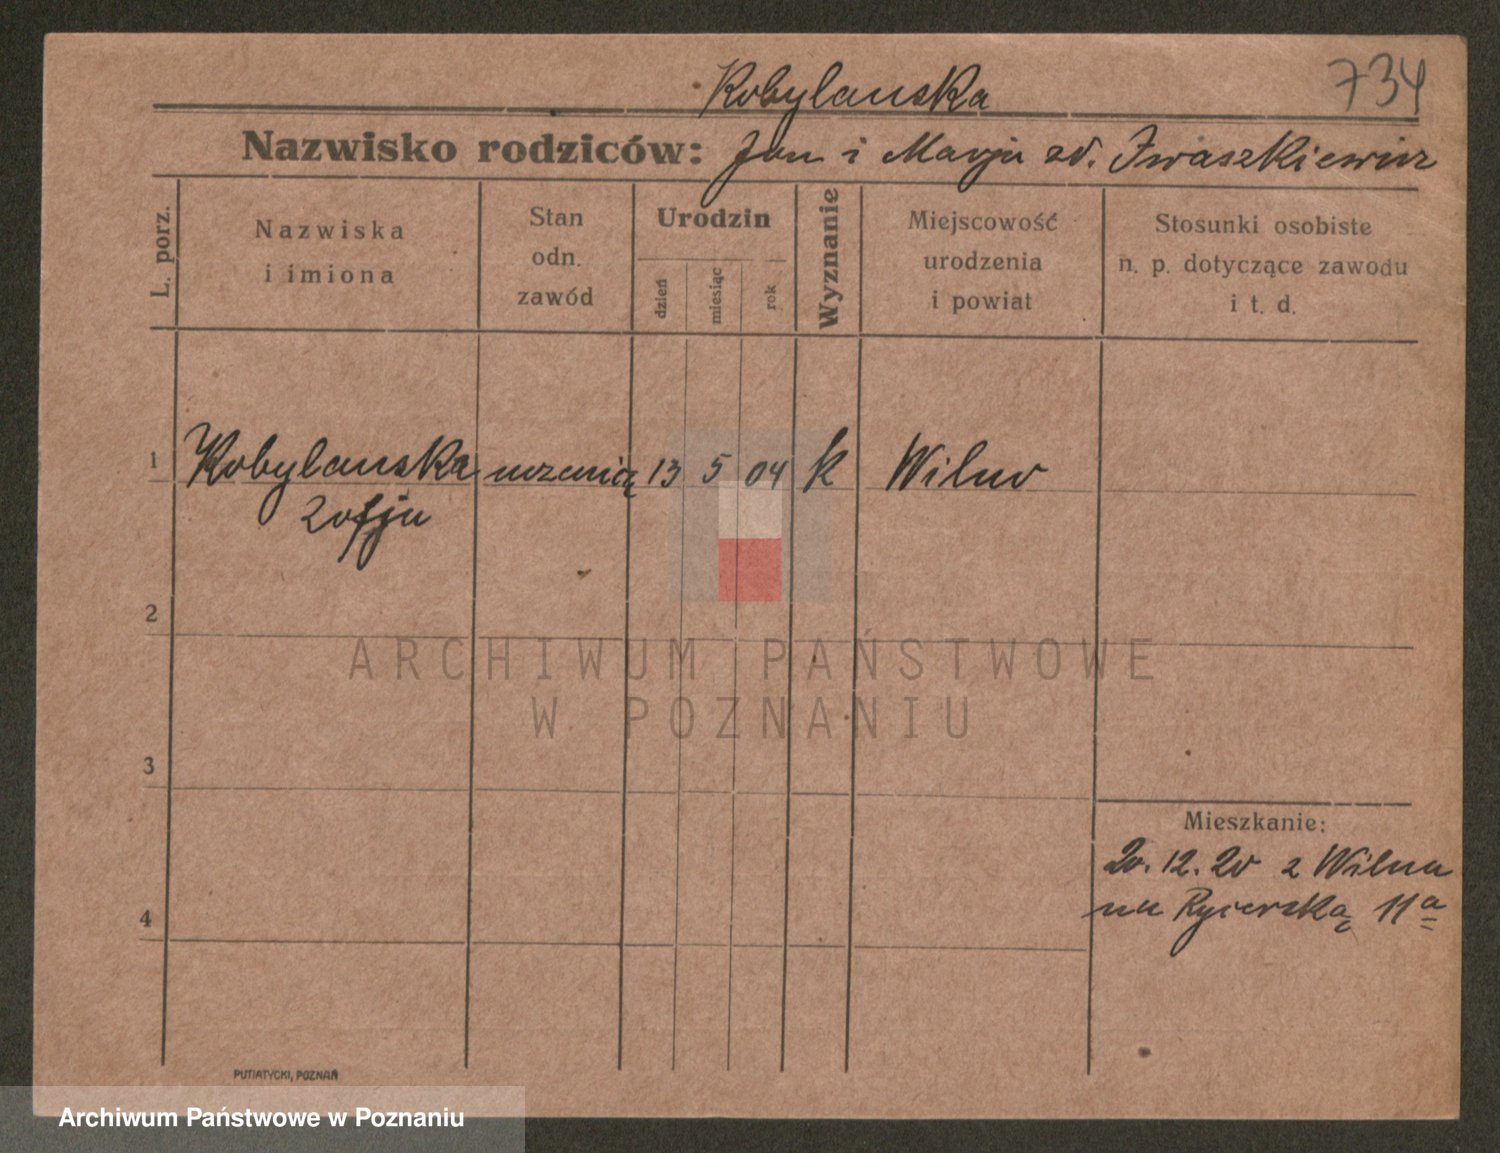 734
Kobylanska
Nazwisko rodziców: Jan i Marja zd. Iwaszkiewicz
L. porz.
Nazwiska
i imiona
Stan
odn.
zawód
Urodzin
dzień
miesiąc
rok
Wyznanie
Miejscowość
urodzenia
i powiat
Stosunki osobiste
n. p. dotyczące zawodu
i t. d.
1 Kobylanska uczenica 13 5 04 k Wilno
Zofja
2
3
4
Mieszkanie:
20.12.20 z Wilna
na Rycerską 11a
PUTIATYCKI, POZNAŃ
ARCHIWUM PAŃSTWOWE
W POZNANIU
Archiwum Państwowe w Poznaniu